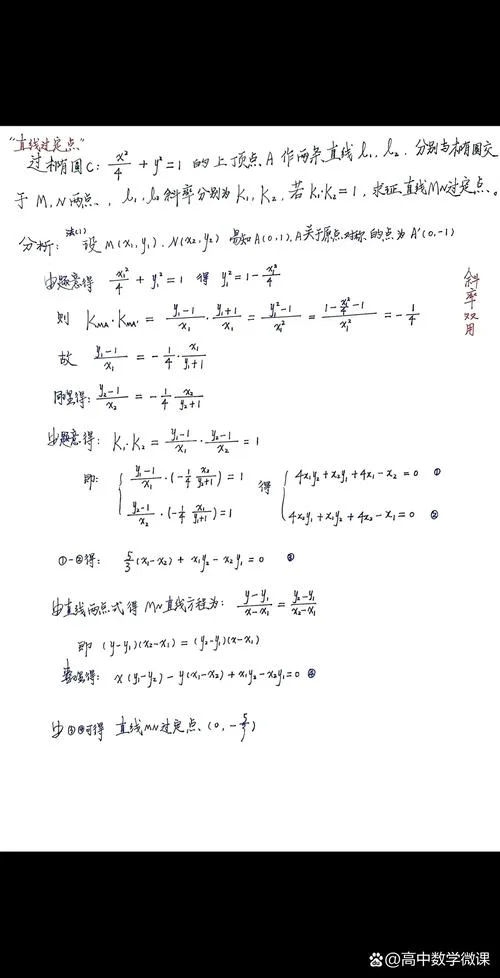 "直线过定点"
过椭圆C: x²/4 + y² = 1 的上顶点A作两条直线l₁、l₂. 分别与椭圆交
于M、N两点、, l₁、l₂斜率分别为K₁、K₂, 若K₁·K₂=1, 求证、直线MN过定点、。
分析: 法(1) 设M(x₁,y₁)、N(x₂,y₂) 易知A(0,1), A关于原点对称的点为A'(0,-1)
由题意得 x₁²/4 + y₁² = 1 得 y₁² = 1 - x₁²/4
则 K_MA·K_MA' = (y₁-1)/x₁ · (y₁+1)/x₁ = (y₁²-1)/x₁² = (1-x₁²/4-1)/x₁² = -1/4
斜率双用
故 (y₁-1)/x₁ = -1/4 · x₁/(y₁+1)
同理得: (y₂-1)/x₂ = -1/4 x₂/(y₂+1)
由题意得: K₁·K₂ = (y₁-1)/x₁ · (y₂-1)/x₂ = 1
即: { (y₁-1)/x₁ · (-1/4 x₂/(y₂+1)) = 1 得 { 4x₁y₂+x₂y₁+4x₁-x₂ = 0 ①
(y₂-1)/x₂ · (-1/4 x₁/(y₁+1)) = 1 4x₂y₁+x₁y₂+4x₂-x₁ = 0 ②
①-②得: 5/3(x₁-x₂) + x₁y₂ - x₂y₁ = 0 ③
由直线两点式得MN直线方程为: (y-y₁)/(x-x₁) = (y₂-y₁)/(x₂-x₁)
即 (y-y₁)(x₂-x₁) = (y₂-y₁)(x-x₁)
整理得: x(y₁-y₂) - y(x₁-x₂) + x₁y₂-x₂y₁=0 ④
由③④可得 直线MN过定点、(0, -5/3)
高中数学微课